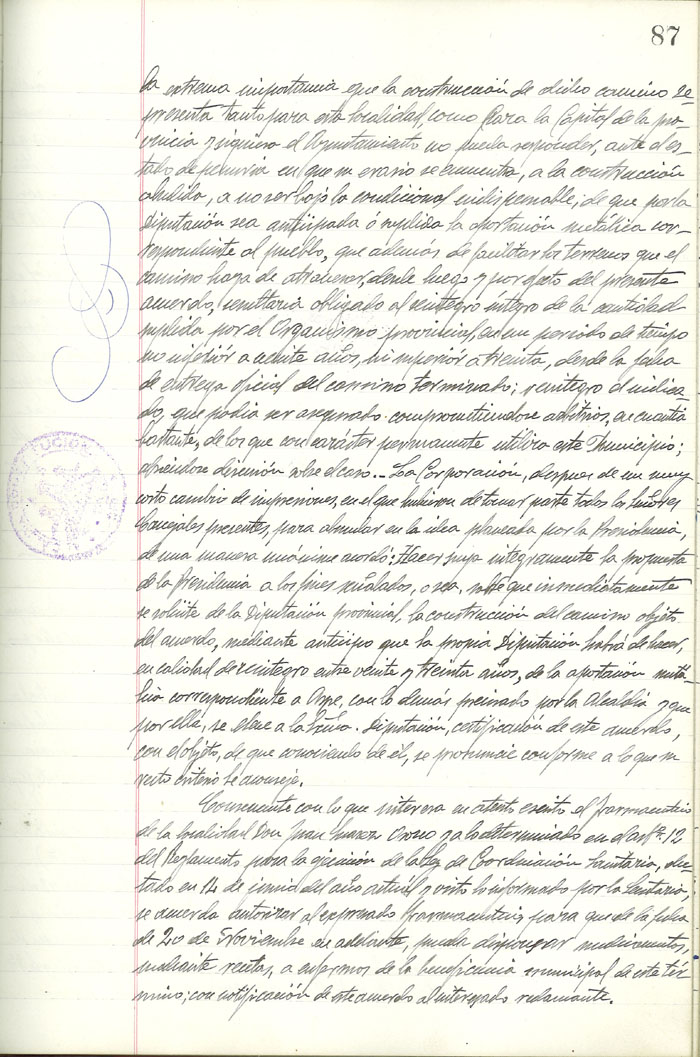 87
la extrema importancia que la construcción de dicho camino re-
presenta tanto para esta localidad, como para la Capital de la pro-
vincia y siquiera el Ayuntamiento no pueda responder, ante el es-
tado de penuria en que su erario se encuentra, a la construcción
aludida, a no ser bajo la condicional indispensable, de que por la
Diputación sea anticipada ó suplida la aportación metálica cor-
respondiente al pueblo, que además de facilitar los terrenos que el
camino haya de atravesar, desde luego y por efecto del presente
acuerdo, resultaria obligado al reintegro íntegro de la cantidad
suplida por el Organismo provincial, en un periodo de tiempo
no inferiór a veinte años, ni superiór a treinta, desde la fecha
de entrega oficial del camino terminado; reintegro el indica-
do, que podia ser asegurado comprometiendose arbitrios, en cuantia
bastante, de los que con carácter permanente utiliza este Municipio;
abriendose discusión sobre el caso.- La Corporación, despues de un muy
corto cambio de impresiones, en el que hubieron de tomar parte todos los Señores
Concejales presentes, para abundar en la idea planeada por la Presidencia,
de una manera unánime acordó: Hacer suya íntegramente la propuesta
de la Presidencia a los fines señalados, o sea, que inmediatamente
se solicite de la Diputación provincial, la construcción del camino objeto
del acuerdo, mediante anticipo que la propia Diputación habrá de hacer,
en calidad de reintegro entre veinte y treinta años, de la aportación metá-
lica correspondiente a Aspe, con lo demás precisado por la Alcaldia y que
por ella, se eleve a la Excma. Diputación, certificación de este acuerdo,
con el objeto, de que conociendo de él, se pronuncie conforme a lo que su
recto criterio le aconseje.
Consecuente con lo que interesa en atento escrito el farmaceutico
de la localidad Don Juan y a lo determinado en el artº. 12
del Reglamento para la ejecución de la Ley de Coordinación Sanitaria, dic-
tado en 14 de junio del año actual y visto lo informado por la Sanitaria,
se acuerda autorizar al expresado Farmaceutico para que de la fecha
de 20 de Noviembre en adelante, pueda dispensar medicamentos,
mediante recetas, a enfermos de la beneficencia municipal de este tér-
mino; con notificación de este acuerdo al interesado reclamante.